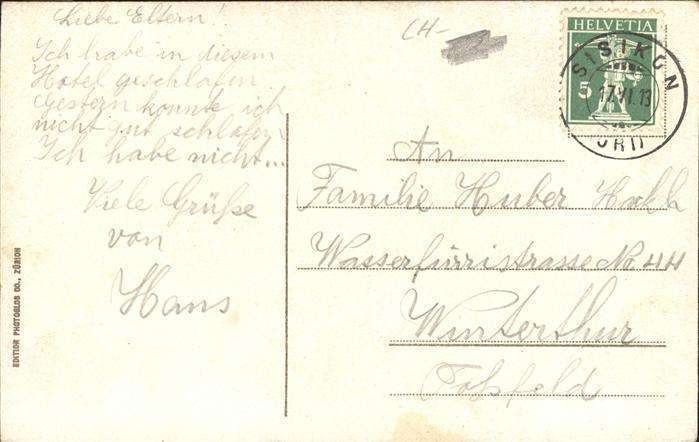 Liebe Eltern!
Ich habe in diesem
Hotel geschlafen.
Gestern konnte ich
nicht gut schlafen
Ich habe nicht...
Viele Grüße
von
Hans
EDITION PHOTOGLOB CO., ZÜRICH
CH-
HELVETIA
5
SISIKON
17.VI.13
(URI)
An
Familie Huber
Wasserfurristrasse No. 44
Winterthur
Tössfeld